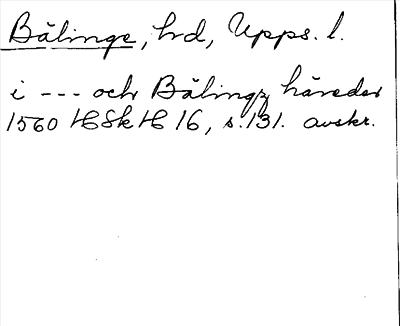 Bälinge, hd, Upps. l.
i --- och Bälingz häreder
1560 HSkH 16, s. 131. avskr.